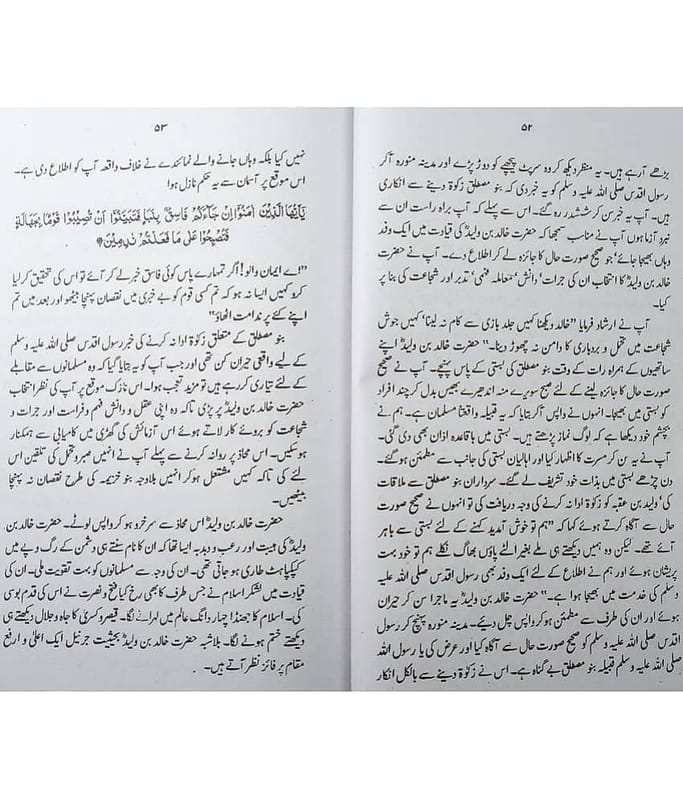 ۵۲
بڑھے آرہے ہیں۔ یہ منظر دیکھ کر وہ سرپٹ پیچھے کو دوڑ پڑے اور مدینہ منورہ آکر
رسول اقدس صلی اللہ علیہ وسلم کو یہ خبر دی کہ بنو مصطلق زکوٰۃ دینے سے انکاری
ہیں۔ آپ یہ خبر سن کر ششدر رہ گئے۔ اس سے پہلے کہ آپ براہ راست ان سے
نبرد آزما ہوں آپ نے مناسب سمجھا کہ حضرت خالد بن ولیدؓ کی قیادت میں ایک وفد
وہاں بھیجا جائے' جو صحیح صورت حال کا جائزہ لے کر اطلاع دے۔ آپ نے حضرت
خالد بن ولیدؓ کا انتخاب ان کی جرات' دانش' معاملہ فہمی' تدبر اور شجاعت کی بنا پر
کیا۔
آپ نے ارشاد فرمایا "خالد دیکھنا کہیں جلد بازی سے کام نہ لینا' کہیں جوش
شجاعت میں تحمل و بردباری کا دامن نہ چھوڑ دینا۔" حضرت خالد بن ولیدؓ اپنے
ساتھیوں کے ہمراہ رات کے وقت بنو مصطلق کی بستی کے پاس پہنچے۔ آپ نے صحیح
صورت حال کا جائزہ لینے کے لئے صبح سویرے منہ اندھیرے بھیس بدل کر چند افراد
کو بستی میں بھیجا۔ انہوں نے واپس آکر بتایا کہ یہ قبیلہ واقعتاً مسلمان ہے۔ ہم نے
بچشم خود دیکھا ہے کہ لوگ نماز پڑھتے ہیں۔ بستی میں باقاعدہ اذان بھی دی گئی۔
آپ نے یہ سن کر مسرت کا اظہار کیا اور اہالیان بستی کی جانب سے مطمئن ہوگئے۔
دن چڑھے بستی میں بذات خود تشریف لے گئے۔ سرداران بنو مصطلق سے ملاقات
کی' ولید بن عقبہ کو زکوٰۃ ادا نہ کرنے کی وجہ دریافت کی تو انہوں نے صحیح صورت
حال سے آگاہ کرتے ہوئے کہا کہ "ہم تو خوش آمدید کہنے کے لئے بستی سے باہر
آئے تھے۔ لیکن وہ ہمیں دیکھتے ہی ملے بغیر الٹے پاؤں بھاگ نکلے ہم تو خود بہت
پریشان ہوئے اور ہم نے اطلاع کے لئے ایک وفد بھی رسول اقدس صلی اللہ علیہ
وسلم کی خدمت میں بھیجا ہوا ہے۔" حضرت خالد بن ولیدؓ یہ ماجرا سن کر حیران
ہوئے اور ان کی طرف سے مطمئن ہو کر واپس چل دیئے۔ مدینہ منورہ پہنچ کر رسول
اقدس صلی اللہ علیہ وسلم کو صحیح صورت حال سے آگاہ کیا اور عرض کی یا رسول اللہ
صلی اللہ علیہ وسلم قبیلہ بنو مصطلق بے گناہ ہے۔ اس نے زکوٰۃ دینے سے بالکل انکار
۵۳
نہیں کیا بلکہ وہاں جانے والے نمائندے نے خلاف واقعہ آپ کو اطلاع دی ہے۔
اس موقع پر آسمان سے یہ حکم نازل ہوا
يٰٓاَيُّهَا الَّذِيْنَ اٰمَنُوْٓا اِنْ جَآءَكُمْ فَاسِقٌۢ بِنَبَاٍ فَتَبَيَّنُوْٓا اَنْ تُصِيْبُوْا قَوْمًۢا بِجَهَالَةٍ
فَتُصْبِحُوْا عَلٰى مَا فَعَلْتُمْ نٰدِمِيْنَ
"اے ایمان والو! اگر تمہارے پاس کوئی فاسق خبر لے کر آئے تو اس کی تحقیق کر لیا
کرو کہیں ایسا نہ ہو کہ تم کسی قوم کو بے خبری میں نقصان پہنچا بیٹھو اور بعد میں تم
اپنے کئے پر ندامت اٹھاؤ"
بنو مصطلق کے متعلق زکوٰۃ ادا نہ کرنے کی خبر رسول اقدس صلی اللہ علیہ وسلم
کے لیے واقعی حیران کن تھی اور جب آپ کو یہ بتایا گیا کہ وہ مسلمانوں سے مقابلے
کے لئے تیاری کررہے ہیں تو مزید تعجب ہوا۔ اس نازک موقع پر آپ کی نظر انتخاب
حضرت خالد بن ولیدؓ پر پڑی تاکہ وہ اپنی عقل و دانش فہم و فراست اور جرات و
شجاعت کو بروئے کار لاتے ہوئے اس آزمائش کی گھڑی میں کامیابی سے ہمکنار
ہوسکیں۔ اس محاذ پر روانہ کرنے سے پہلے آپ نے انہیں صبرو تحمل کی تلقین اس
لئے کی تاکہ کہیں مشتعل ہو کر انہیں بلاوجہ بنو خزیمہ کی طرح نقصان نہ پہنچا
بیٹھیں۔
حضرت خالد بن ولیدؓ اس محاذ سے سرخرو ہو کر واپس لوٹے۔ حضرت خالد بن
ولیدؓ کی ہیبت اور رعب و دبدبہ ایسا تھا کہ ان کا نام سنتے ہی دشمن کے رگ و پے میں
کپکپاہٹ طاری ہو جاتی تھی۔ ان کی وجہ سے مسلمانوں کو بہت تقویت ملی۔ ان کی
قیادت میں لشکر اسلام نے جس طرف کا بھی رخ کیا فتح و نصرت نے اس کی قدم بوسی
کی۔ اسلام کا جھنڈا چہار دانگ عالم میں لہرانے لگا۔ قیصر و کسریٰ کا جاہ و جلال دیکھتے ہی
دیکھتے ختم ہونے لگا۔ بلاشبہ حضرت خالد بن ولیدؓ بحیثیت جرنیل ایک اعلیٰ و ارفع
مقام پر فائز نظر آتے ہیں۔